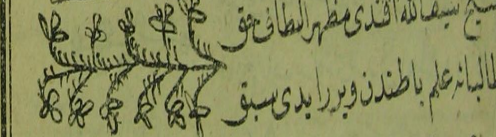 شيخ سيف الله افندى مظهر الطاف حق
طالبانه علم باطندن ويرر ايدى سبق